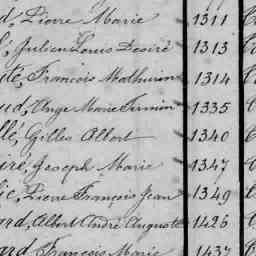 d, Pierre Marie 1311
Julien Louis Desiré 1313
té, François Mathurin 1314
ud, Ange Marie Firmin 1335
lle, Gilles Albert 1340
iré, Joseph Marie 1347
ic, Pierre François Jean 1349
ard, Albert André Auguste 1426
ard, François Marie 1437